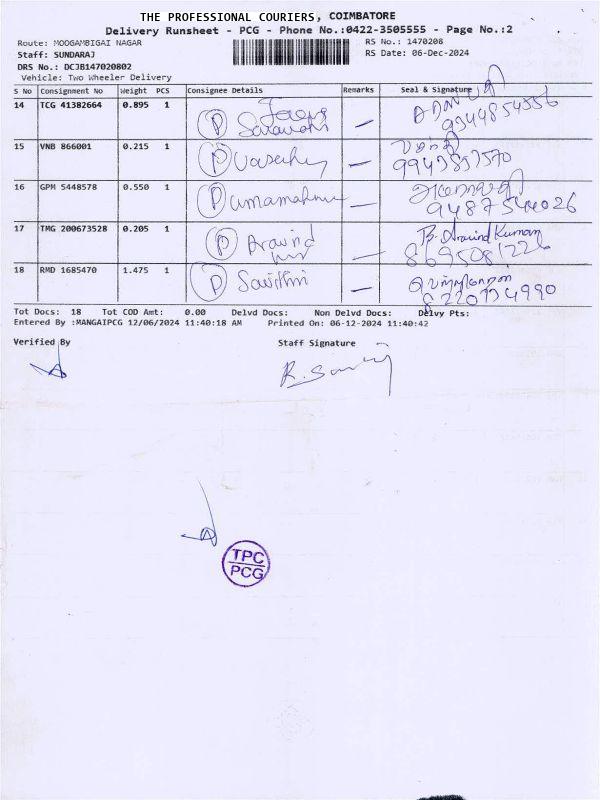 THE PROFESSIONAL COURIERS, COIMBATORE
Delivery Runsheet - PCG - Phone No.:0422-3505555 - Page No.:2
Route: MOOGAMBIGAI NAGAR
RS No.: 1470208
Staff: SUNDARAJ
RS Date: 06-Dec-2024
DRS No.: DCJB147020802
Vehicle: Two Wheeler Delivery
S No Consignment No Weight PCS Consignee Details Remarks Seal & Signature
14 TCG 41382664 0.895 1 P Saravathi —
9344854556
15 VNB 866001 0.215 1 P — வசந்தி
16 GPM 5448578 0.550 1 P —
17 TMG 200673528 0.205 1 P Aravind — B. Aravind Kumar
8695081226
18 RMD 1685470 1.475 1 P Savithri —
8220734990
Tot Docs: 18 Tot COD Amt: 0.00 Delvd Docs: Non Delvd Docs: Delvy Pts:
Entered By :MANGAIPCG 12/06/2024 11:40:18 AM Printed On: 06-12-2024 11:40:42
Verified By Staff Signature
TPC
PCG